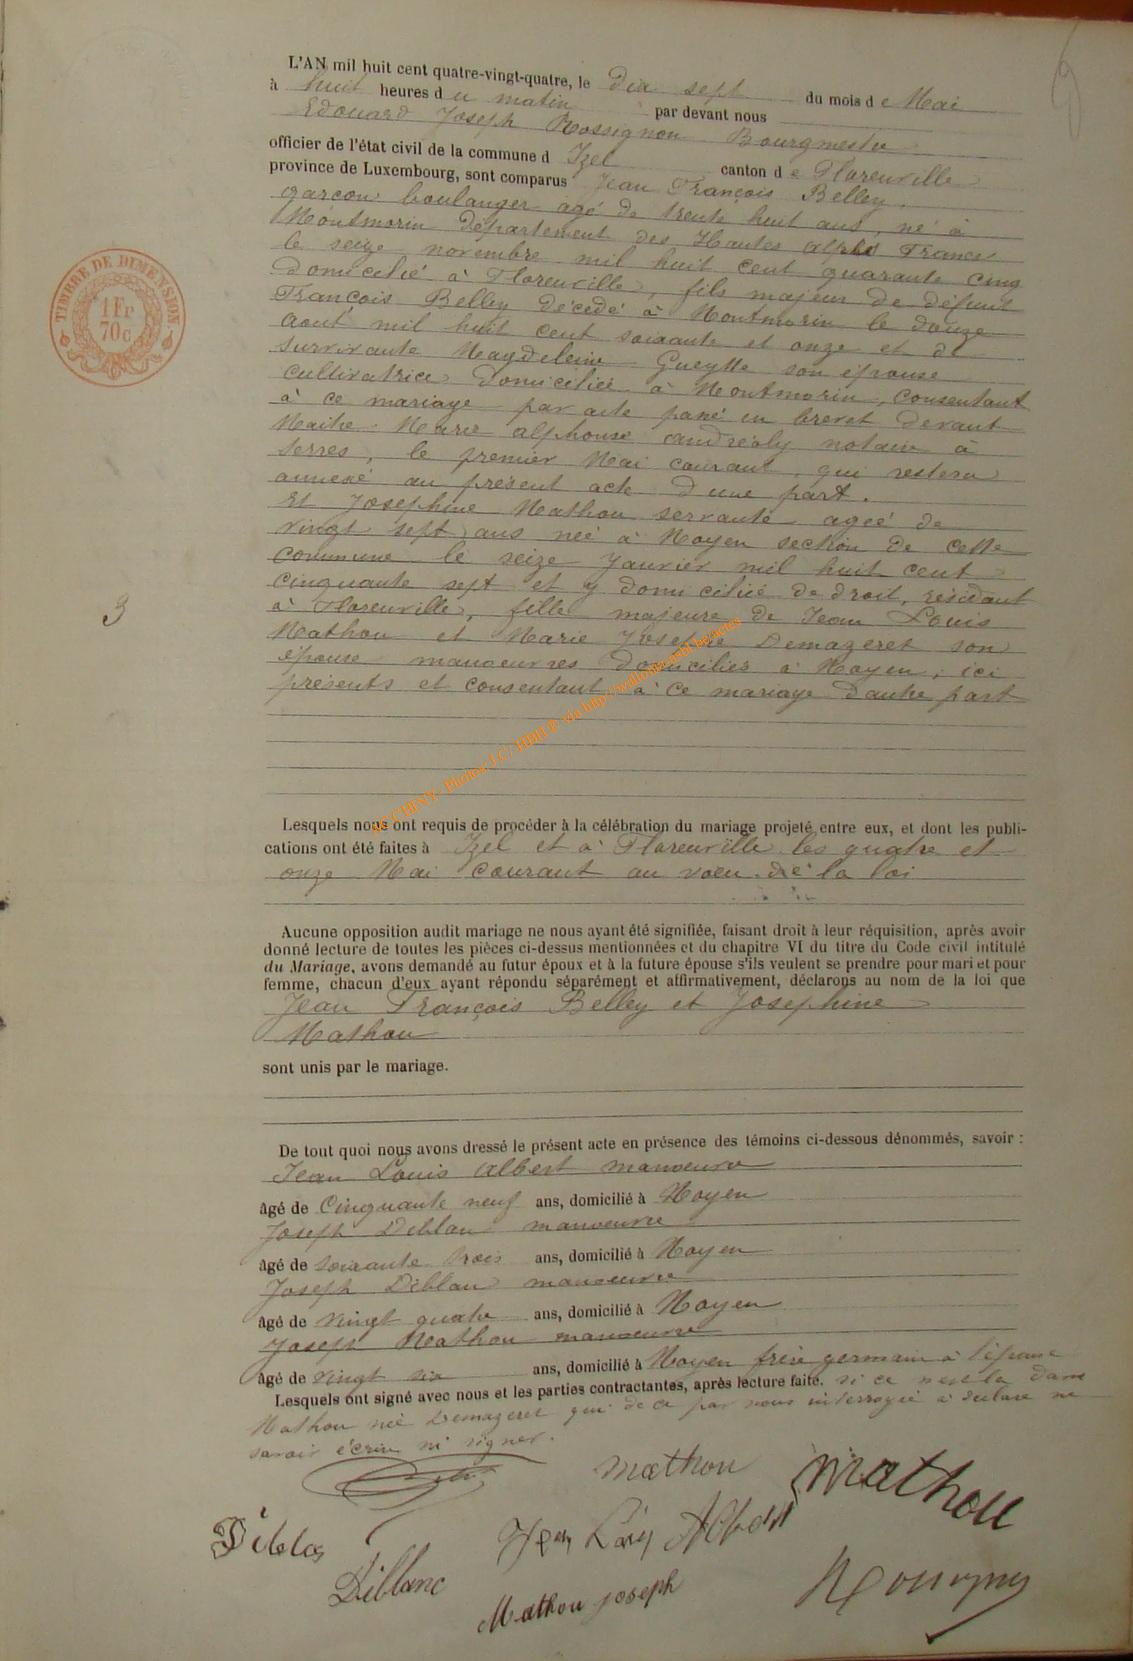 L'AN mil huit cent quatre-vingt-quatre, le dix sept du mois de Mai
à huit heures du matin par devant nous
Edouard Joseph Rossignon Bourgmestre
officier de l'état civil de la commune d Izel canton de Florenville
province de Luxembourg, sont comparus Jean François Belley,
garçon boulanger agé de trente huit ans, né à
Montmorin département des Hautes alpes France
le seize novembre mil huit cent quarante cinq
domicilié à Florenville, fils majeur de défunt
François Belley décédé à Montmorin le douze
aout mil huit cent soixante et onze et de
survivante Magdeleine Gueytte son épouse
cultivatrice domiciliée à Montmorin, consentant
à ce mariage par acte passé en brevet devant
Maitre Marie alphonse andréoly notaire à
Serres, le premier Mai courant, qui restera
annexé au présent acte d'une part.
Et Josephine Mathou servante agée de
vingt sept ans née à Moyen section de cette
commune le seize Janvier mil huit cent
cinquante sept et y domiciliée de droit, résidant
à Florenville, fille majeure de Jean Louis
Mathou et Marie Josephe Demazeret son
épouse manoeuvres domiciliés à Moyen, ici
présents et consentant à ce mariage d'autre part
3
TIMBRE DE DIMENSION.
1Fr
70c
Lesquels nous ont requis de procéder à la célébration du mariage projeté entre eux, et dont les publi-
cations ont été faites à Izel et à Florenville les quatre et
onze Mai courant au voeu de la loi
Aucune opposition audit mariage ne nous ayant été signifiée, faisant droit à leur réquisition, après avoir
donné lecture de toutes les pièces ci-dessus mentionnées et du chapitre VI du titre du Code civil intitulé
du Mariage, avons demandé au futur époux et à la future épouse s'ils veulent se prendre pour mari et pour
femme, chacun d'eux ayant répondu séparément et affirmativement, déclarons au nom de la loi que
Jean François Belley et Josephine
Mathou
sont unis par le mariage.
De tout quoi nous avons dressé le présent acte en présence des témoins ci-dessous dénommés, savoir :
Jean Louis Albert manoeuvre
âgé de Cinquante neuf ans, domicilié à Moyen
Joseph Diblan manoeuvre
âgé de soixante trois ans, domicilié à Moyen
Joseph Diblan manoeuvre
âgé de vingt quatre ans, domicilié à Moyen
Joseph Mathou manoeuvre
âgé de vingt six ans, domicilié à Moyen frère germain à l'épouse
Lesquels ont signé avec nous et les parties contractantes, après lecture faite. si ce n'est la dame
Mathou née Demazeret qui de ce par nous interrogée a déclaré ne
savoir écrire ni signer.
mathou Mathou
Albert
Diblanc
Mathou joseph